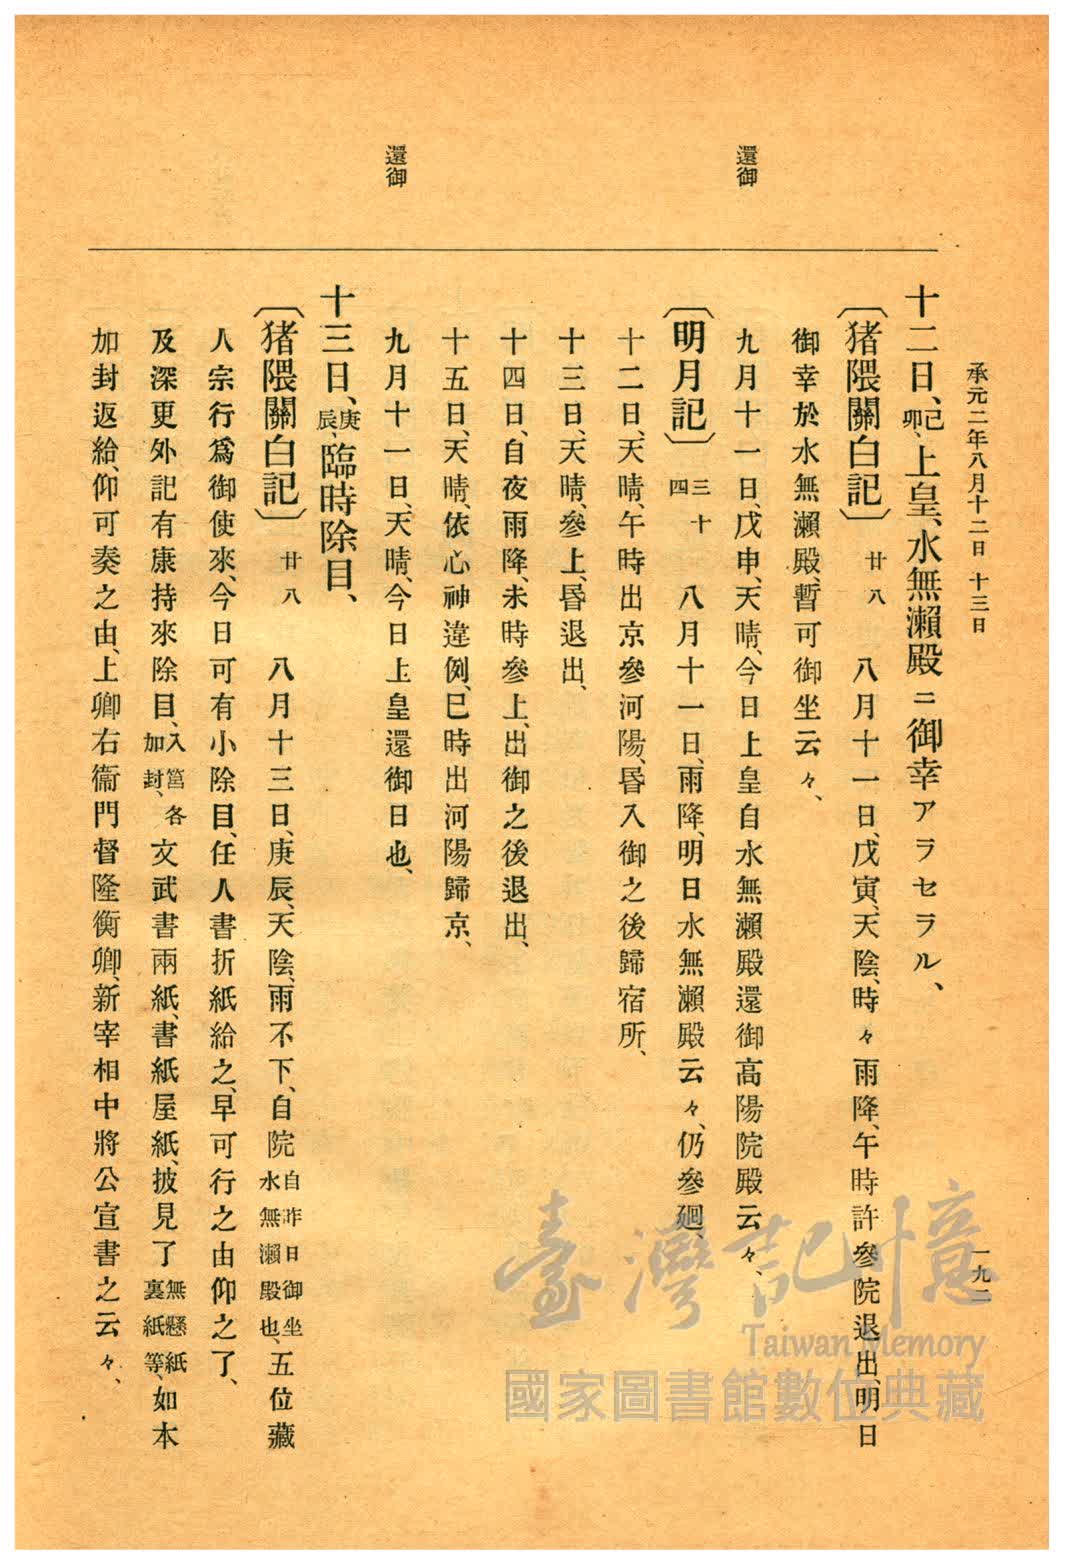 承元二年八月十二日 十三日
一九二
十二日、己卯、上皇、水無瀨殿ニ御幸アラセラル、
〔猪隈關白記〕 廿八 八月十一日、戊寅、天陰、時々雨降、午時許參院退出、明日
御幸於水無瀨殿、暫可御坐云々、
還御
九月十一日、戊申、天晴、今日上皇自水無瀨殿還御高陽院殿云々、
〔明月記〕 三十四 八月十一日、雨降、明日水無瀨殿云々、仍參廻、
十二日、天晴、午時出京參河陽、昏入御之後歸宿所、
十三日、天晴、參上、昏退出、
十四日、自夜雨降、未時參上、出御之後退出、
十五日、天晴、依心神違例、巳時出河陽歸京、
還御
九月十一日、天晴、今日上皇還御日也、
十三日、庚辰、臨時除目、
〔猪隈關白記〕 廿八 八月十三日、庚辰、天陰、雨不下、自院自昨日御坐水無瀨殿也、五位藏
人宗行爲御使來、今日可有小除目、任人書折紙給之、早可行之由仰之了、
及深更外記有康持來除目、入筥各加封、文武書兩紙、書紙屋紙、披見了無懸紙裏紙等、如本
加封返給、仰可奏之由、上卿右衞門督隆衡卿、新宰相中將公宣書之云々、
臺灣記憶
Taiwan Memory
國家圖書館數位典藏